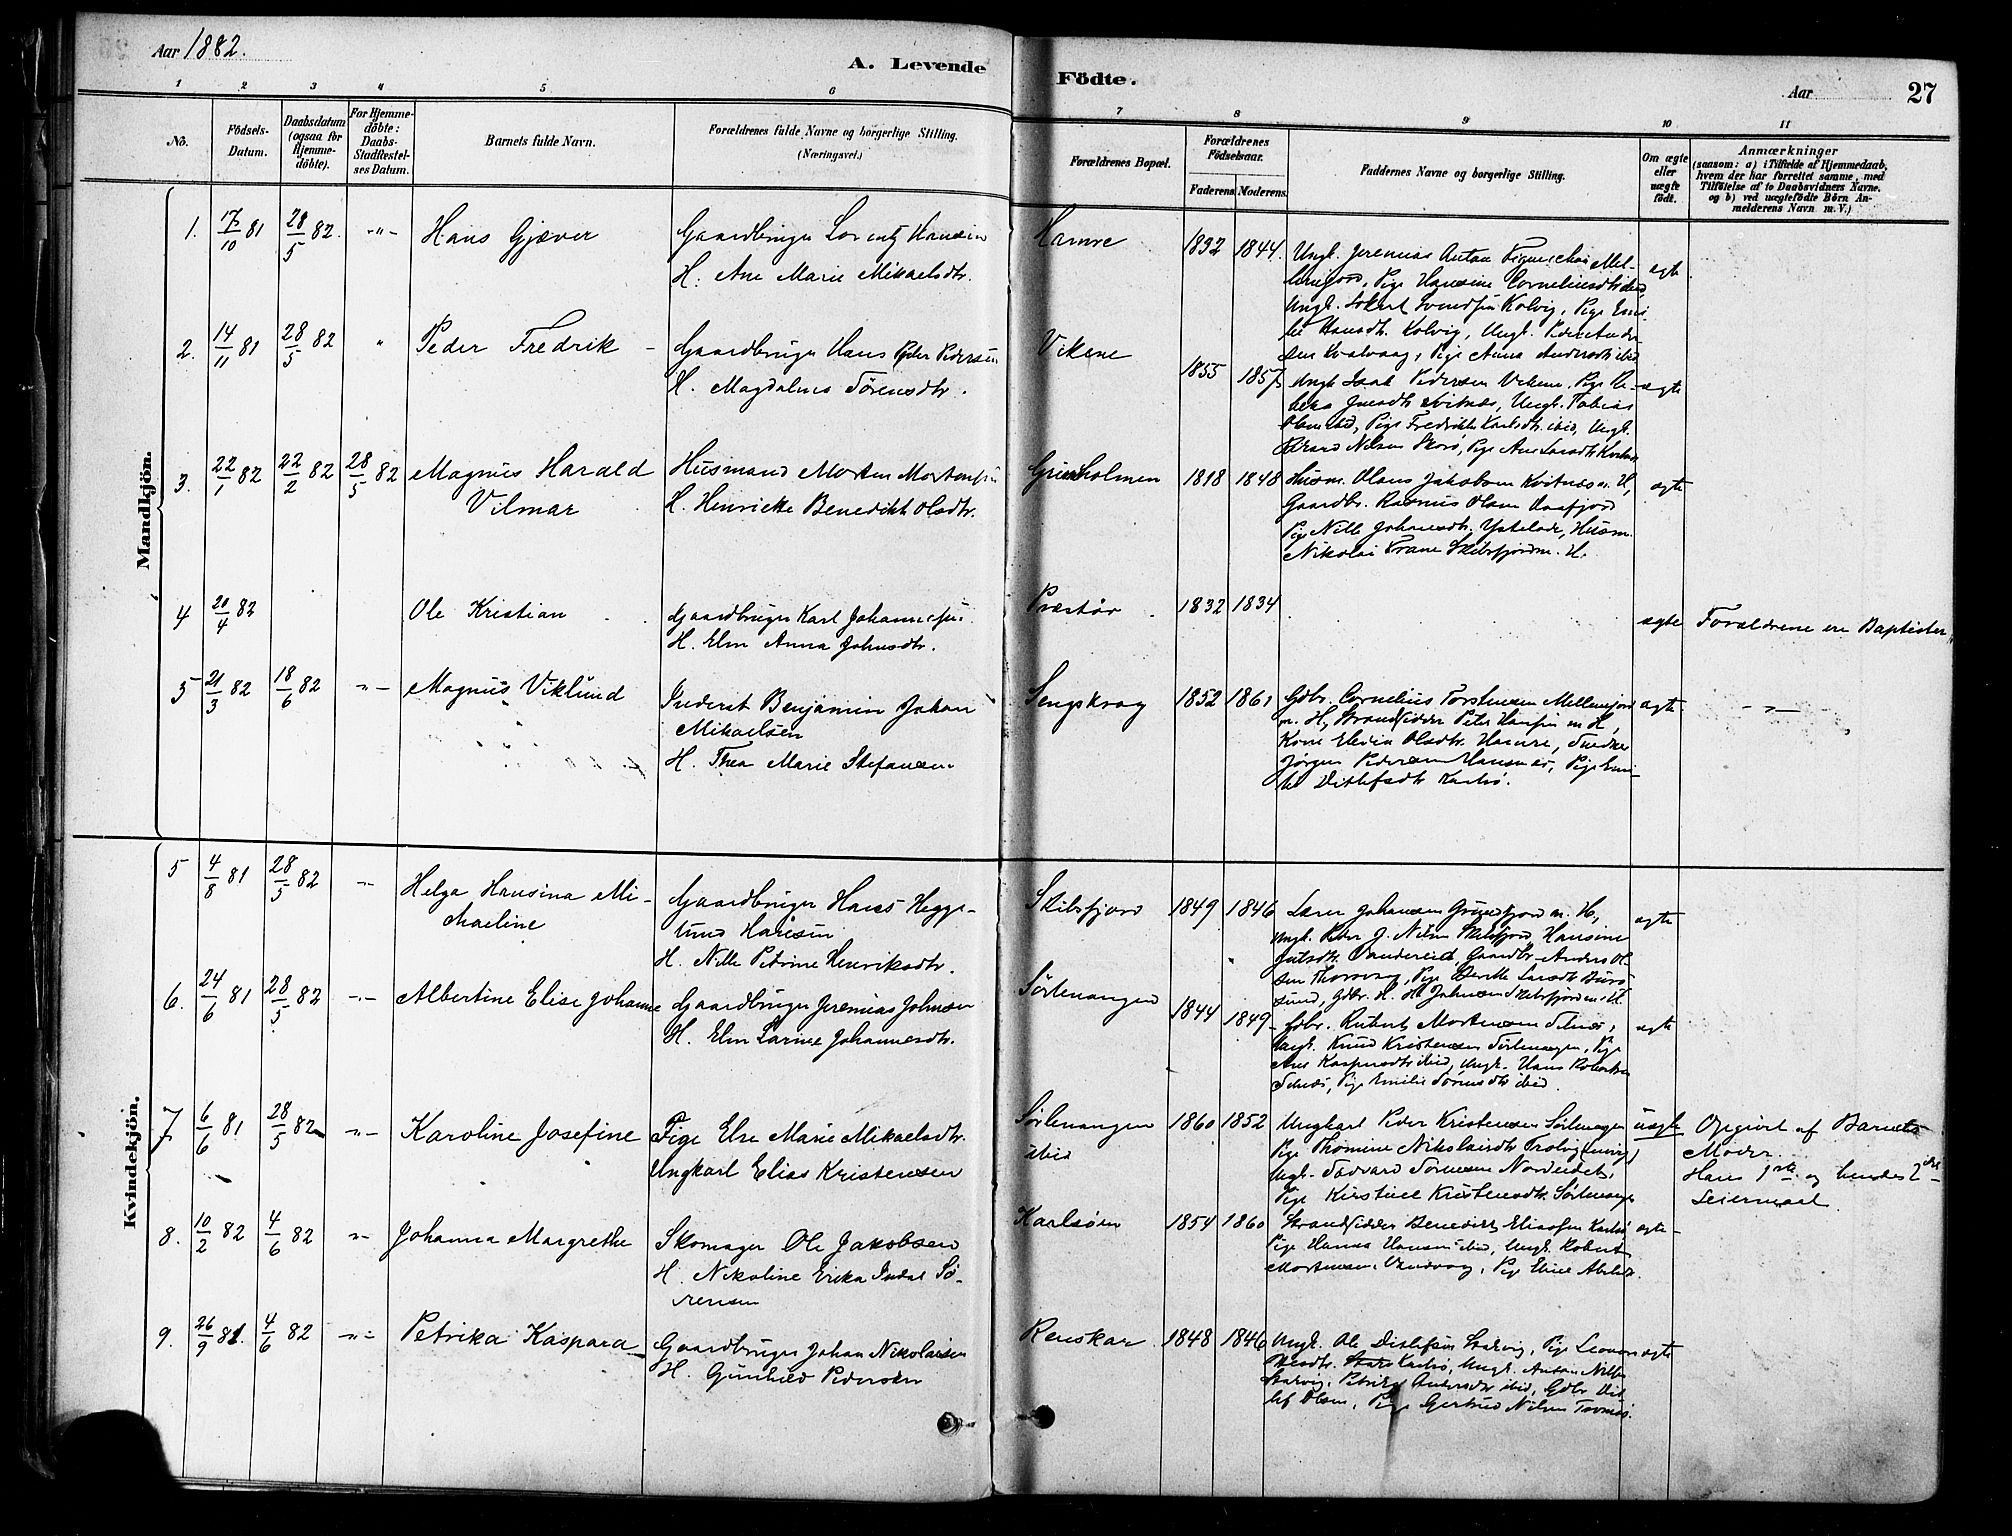 Aar 1882.
A. Levende
Födte.
Aar
27
1
2
3
4
5
6
7
8
9
10
11
No.
Födsels-
Datum.
Daabsdatum
(ogsaa for
Hjemme-
döbte).
For Hjemme-
döbte:
Daabs-
Stadfestel-
ses Datum.
Barnets fulde Navn.
Forældrenes fulde Navne og borgerlige Stilling.
(Næringsvei.)
Forældrenes Bopæl.
Forældrenes
Födselsaar.
Faderens. Moderens.
Faddernes Navne og borgerlige Stilling.
Om ægte
eller
uægte
födt.
Anmærkninger
(saasom: a) i Tilfælde af Hjemmedaab,
hvem der har forrettet samme, med
Tilföielse af to Daabsvidners Navne,
og b) ved uægtefödte Börn An-
melderens Navn m. V.)
Mandkjön.
1. 17/10 81 28/5 82 -"- Hans Gjæver
Gaardbruger Lorentz Hansen
H. Ane Marie Mikaelsdtr.
Hamre 1832 1844.
Ungk. Jeremias Antan
Pige Hansine Corneliusdtr ibid,
Kolvig, Pige
Hansdtr. Kolvig, Ungk. Peder Ander-
sen Kvalvaag, Pige Anna Andersdtr ibid
ægte
2. 14/11 81 28/5 82 " Peder Fredrik
Gaardbruger Hans Peder Pedersen
H. Magdalena Sörensdtr.
Vikene 1855 1857
Ungk. Isak Pedersen Vikene, Pige Re-
bekka Ungk. Tobias
Pige Fredrikke Karlsdtr ibid, Ungk.
Nilsen Skorö, Pige Ane Larsdtr
ægte
3. 22/1 82 22/2 82 28/5 82 Magnus Harald
Vilmar
Husmand Morten Mortensen
H. Henrikke Benedikt Olsdtr.
Grimsholmen 1818 1848
Husm. Olaus Jakobsen Kvitnes m. H,
Gaardbr. Rasmus Olsen Daafjord
Pige Nille Johansdtr. Husm.
Nikolai Frane Skibsfjord m. H.
ægte
4 20/4 82 Ole Kristian
Gaardbruger Karl Johannesen
H. Elen Anna Johnsdtr.
1832 1834
ægte Forældrene ere Baptister
5 21/3 82 18/6 82 -"- Magnus Viklund
Inderst Benjamin Johan
Mikaelsen
H. Thea Marie Stefansen
Sengskrog 1852 1861
Gdbr. Cornelius Torstensen Mellemjord
m. H, Strandsidder Peter Hansen m H,
Kone Olsdtr. Hamre, Snedker
Jörgen Pedersen Hansnes, Pige Emi-
lie Ditlefsdtr Karlsö.
ægte -"-
Kvindekjön.
5 4/8 81 28/5 82 -"- Helga Hansina Mi-
chaeline
Gaardbruger Hans Hegge-
lund Hansen
H. Nille Petrine Henriksdtr.
Skibsfjord 1849 1846
Lærer Johansen Grundfjord m. H,
Ungk. Peder J. Nilsen Skibsfjord, Hansine
Vandereid, Gaardbr. Anders Ol-
sen Thorsvaag, Pige Berthe Larsdtr Burö-
sund, Gdbr. H. H. Johnsen Skibsfjord m. H.
ægte
6. 24/6 81 28/5 82 -"- Albertine Elise Johanne
Gaardbruger Jeremias Johnsen
H. Elen Larine Johannesdtr.
Sörlenangen 1844 1849
Gdbr. Robert Mortensen Selnes,
Ungk. Knud Kristensen Sörlenangen, Pige
Ane Kaspersdtr ibid, Ungk. Hans Robertsen
Selnes, Pige Emilie Sörensdtr ibid.
ægte
7. 6/6 81 28/5 82 -"- Karoline Josefine
Pige Else Marie Mikaelsdtr.
Ungkarl Elias Kristensen
Sörlenangen
ibid
1860 1852
Ungkarl Peder Kristensen Sörlenangen
Pige Thomine Nikolaisdtr Trolvig
Ungk. Edvard Sörensen Nordeidet,
Pige Kirstine Kristensdtr. Sörlenangen
uægte Opgivet af Barnets
Moder.
Hans 1ste og hendes 2det
Leiermaal.
8. 10/2 82 4/6 82 -"- Johanna Margrethe
Skomager Ole Jakobsen
H. Nikoline Erika Indal Sö-
rensen
Karlsöen 1854 1860
Strandsidder Benedikt Eliassen Karlsö
Pige Hansa Hansen ibid, Ungk. Robert
Mortensen Vandvaag, Pige Eline
ægte
9. 26/9 81. 4/6 82 -"- Petrika Kaspara
Gaardbruger Johan Nikolaisen
H. Gunhild Pedersen
Renskar 1848 1846
Ungk. Ole Ditlefsen Pige Leonore
Karlsö, Ungk. Anton
Petrikke Andersdtr ibid, Gdbr Det-
lef Olsen, Pige Gertrud Nilsen
ægte